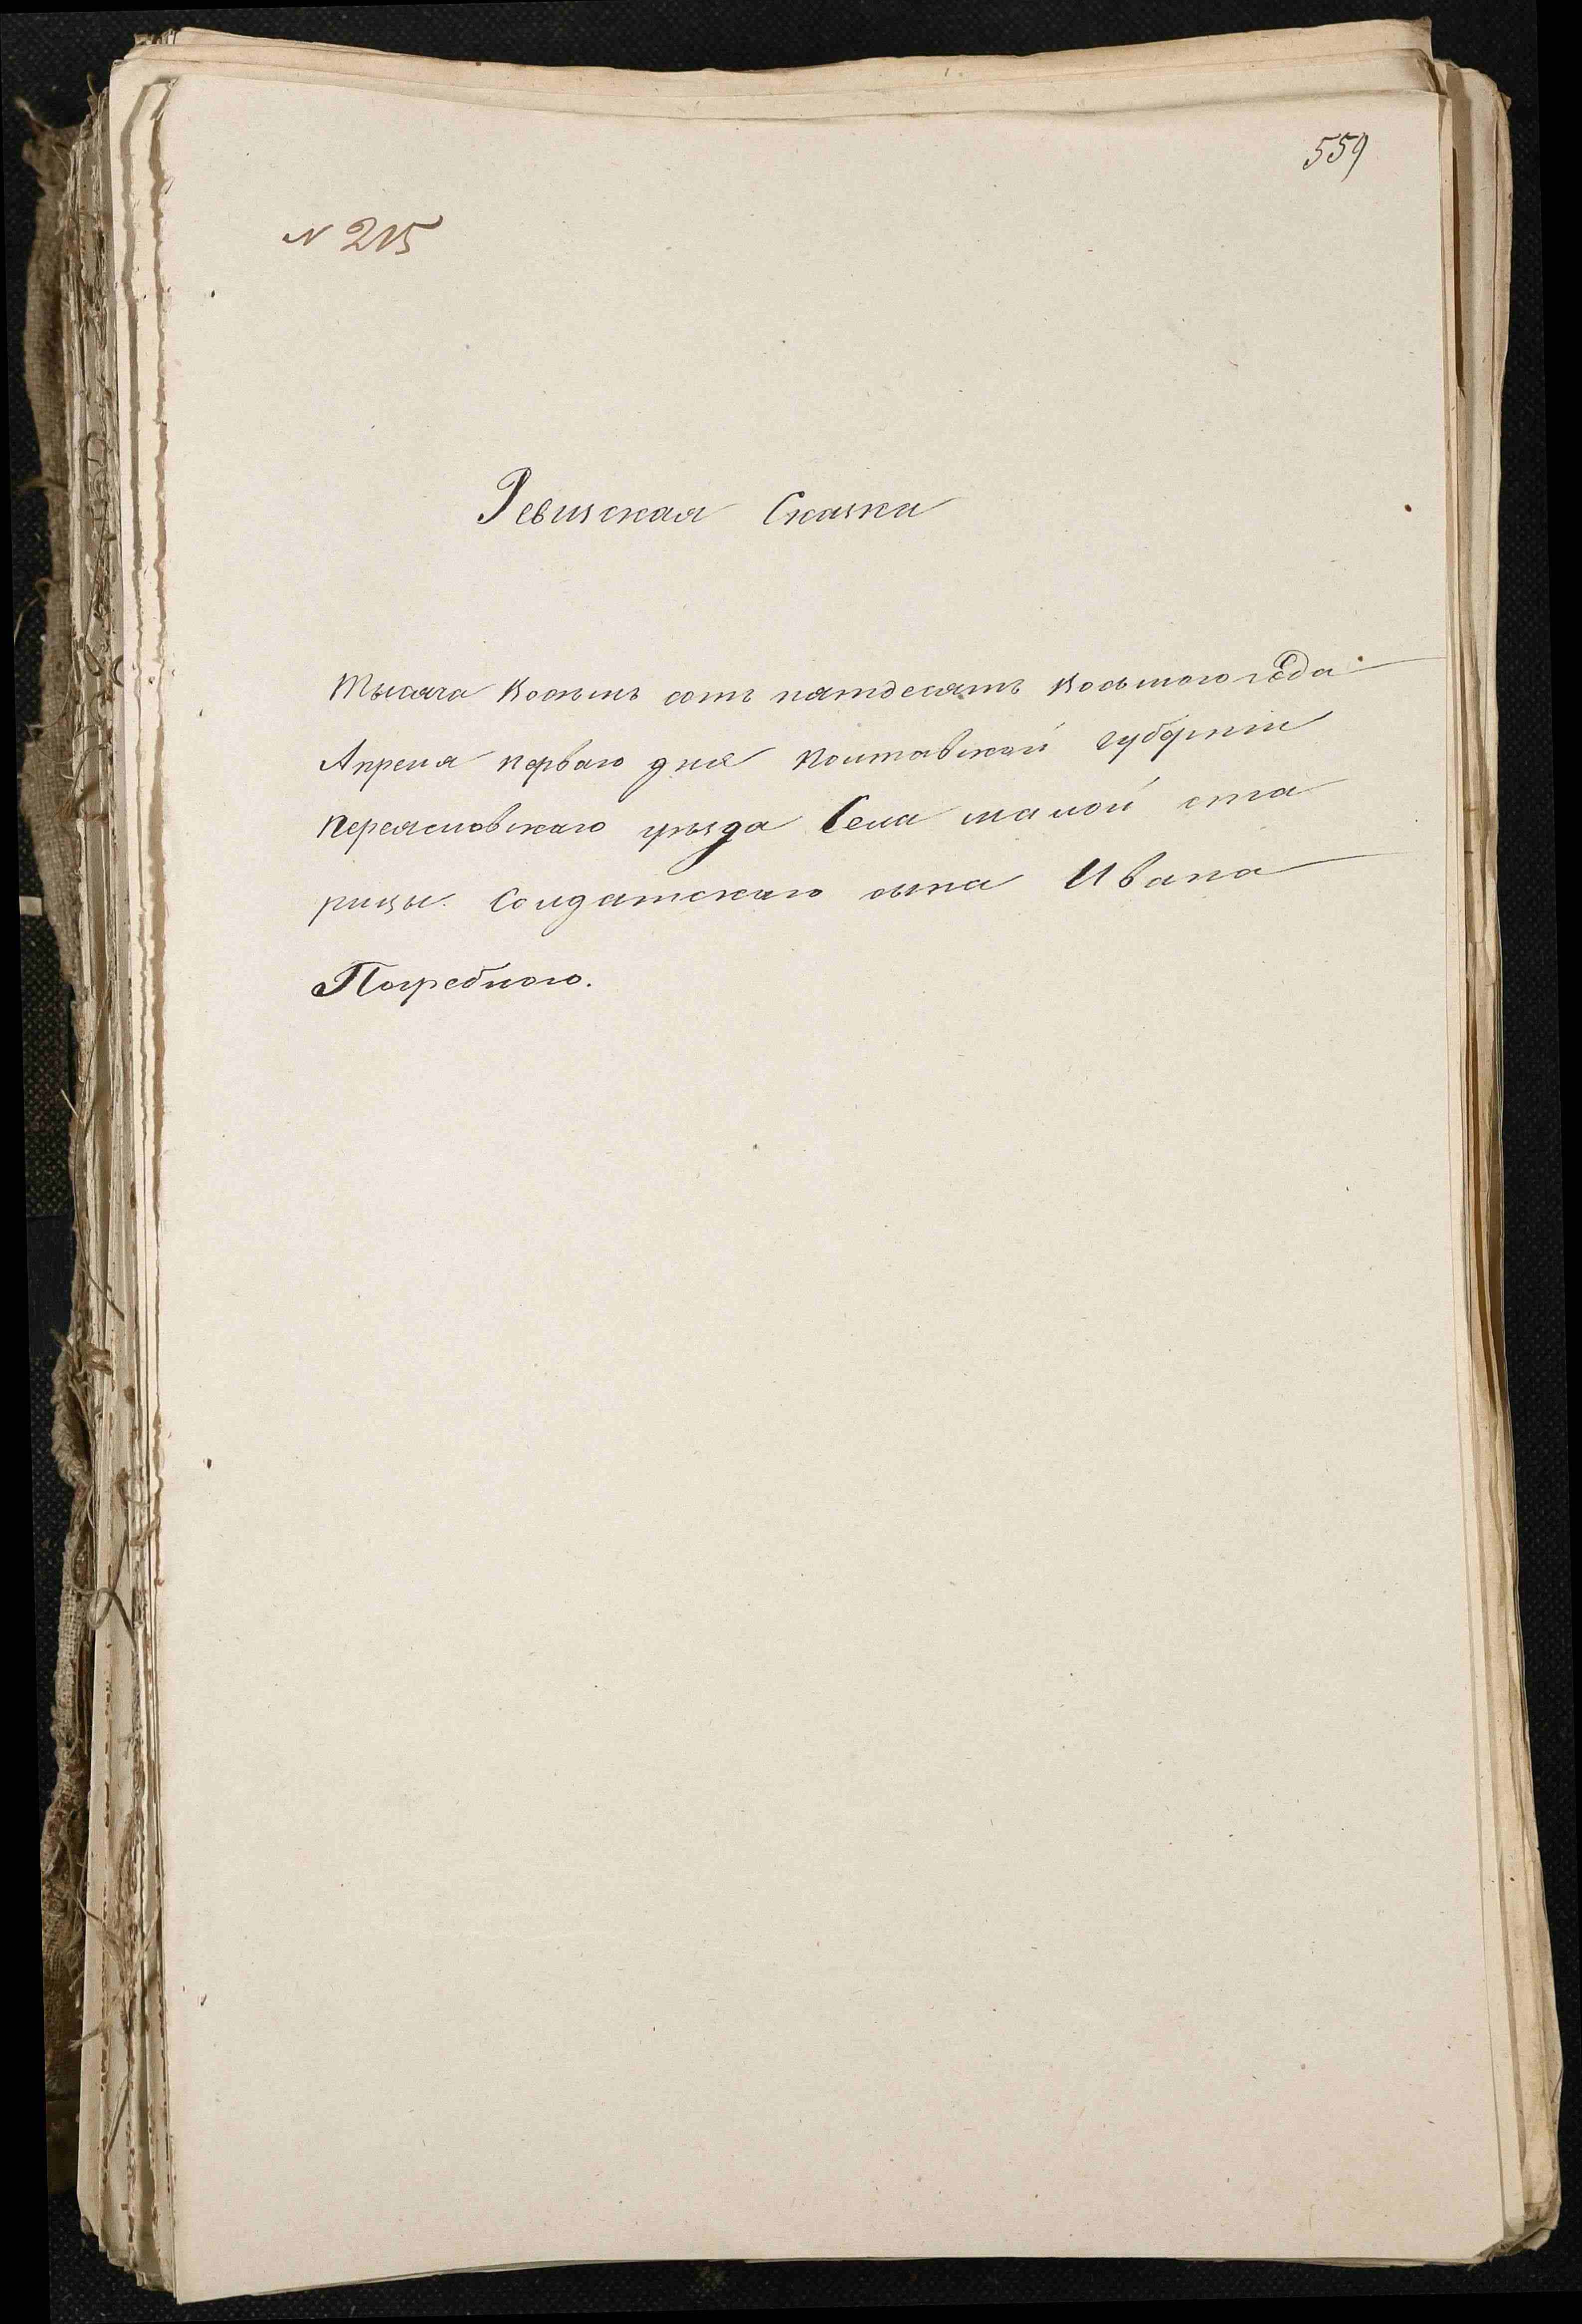 559
N 215
Ревизская Сказка
Тысяча Восемь сотъ пятдесятъ Восьмого года
Апреля перваго дня Полтавской губерніи
Переясловскаго уезда Села малой ста
рицы Солдатскаго сына Ивана
Погребного.